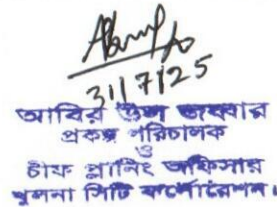 31/7/25
আবির উল জব্বার
প্রকল্প পরিচালক
ও
চীফ প্লানিং অফিসার
খুলনা সিটি কর্পোরেশন।